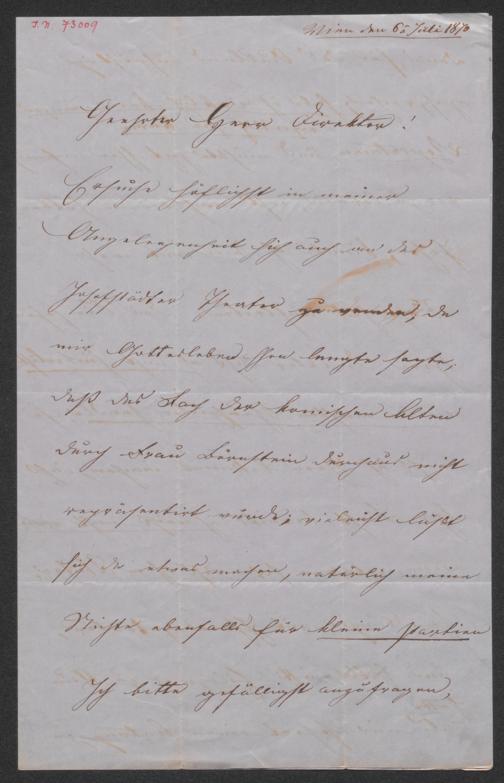 J. N. 73009
Wien den 6t Juli 1870
Geehrter Herr Direktor!
Ersuche höflichst in meiner
Angelegenheit sich auch an das
Josefstädter Theater zu wenden, da
mir Gottesleben sagte,
daß das Fach der komischen Alten
durch Frau Bernstein durchaus nicht
repräsentirt wurde; vieleicht läßt
sich da etwas machen, natürlich meine
Nichte ebenfalls für kleine Partien
Ich bitte gefälligst anzufragen,